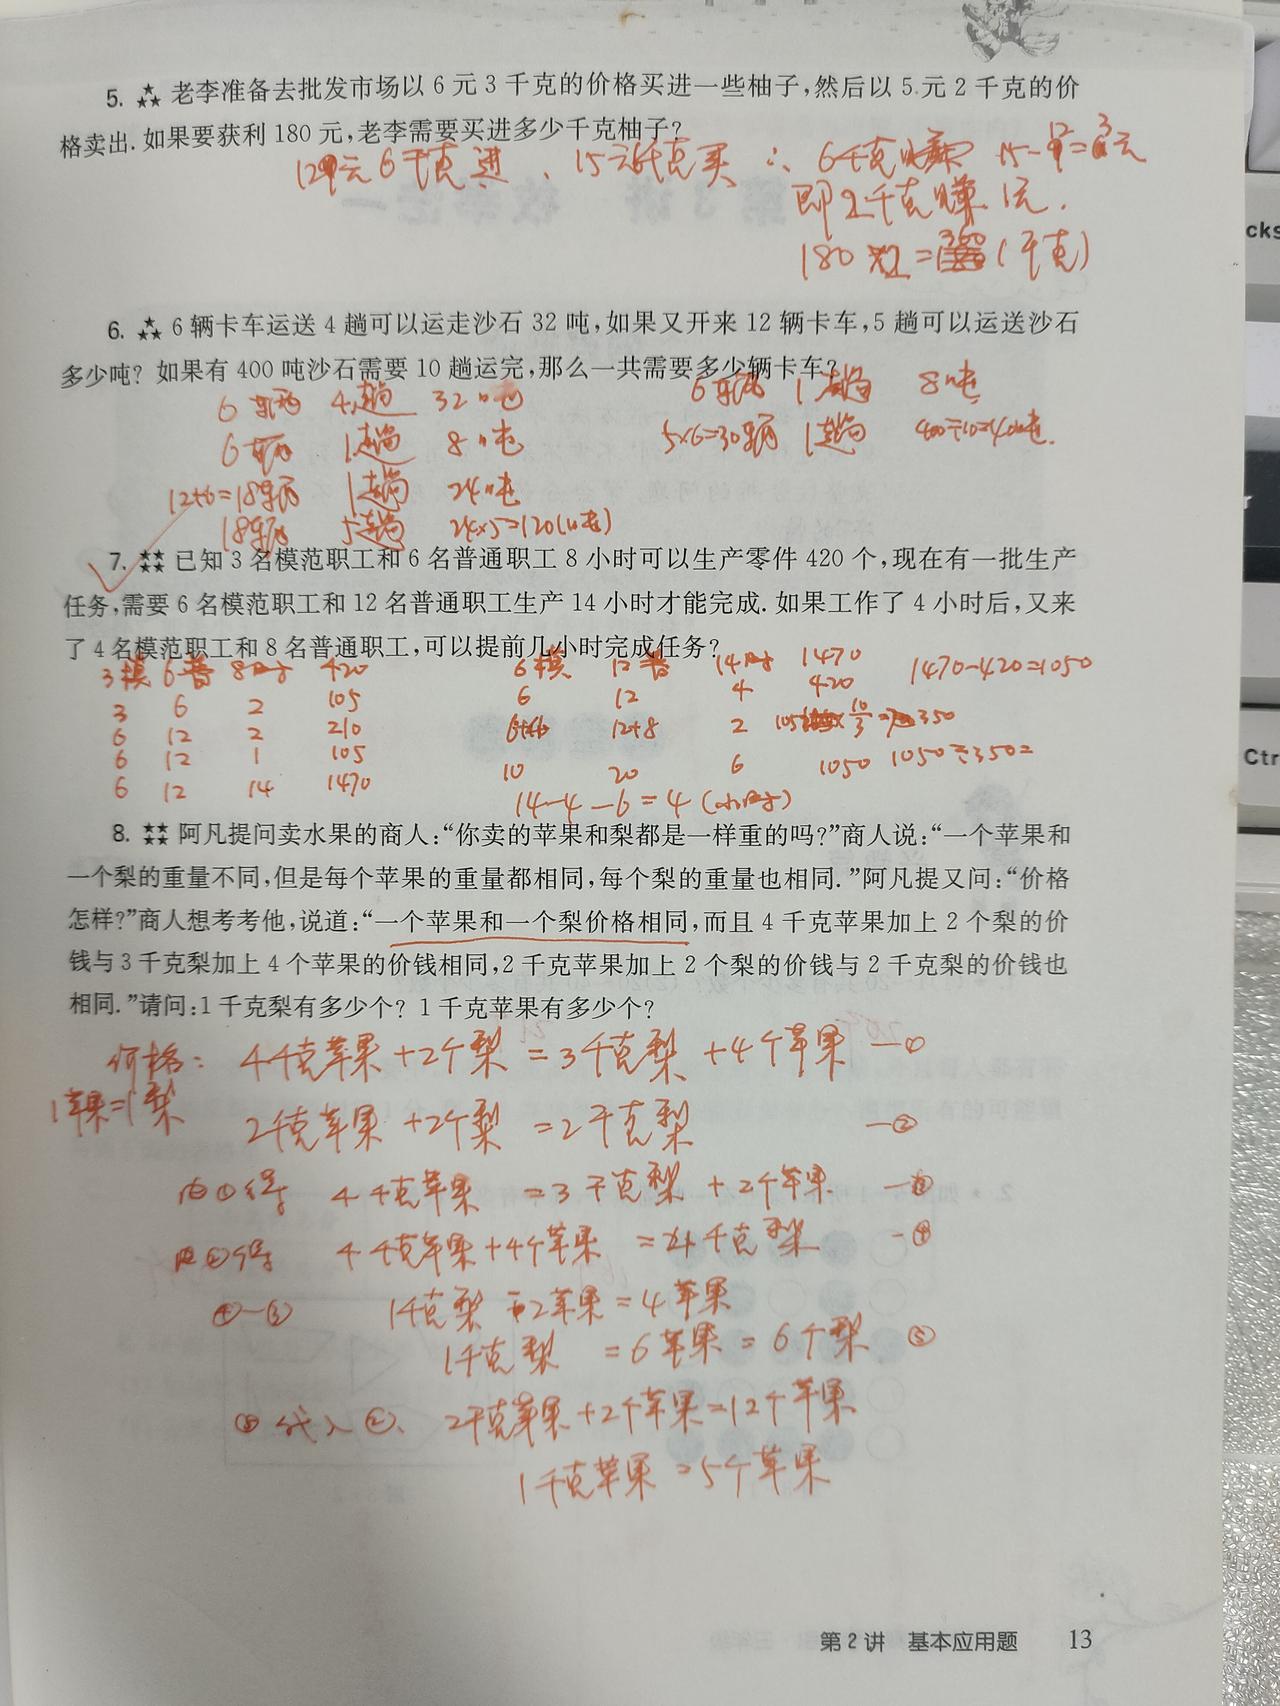 5. 老李准备去批发市场以 6 元 3 千克的价格买进一些柚子,然后以 5 元 2 千克的价
格卖出. 如果要获利 180 元,老李需要买进多少千克柚子?
12元6千克进、15元6千克卖 ∴ 6千克赚 15-12=3元
即2千克赚1元.
180×2=360(千克)
6. 6 辆卡车运送 4 趟可以运走沙石 32 吨,如果又开来 12 辆卡车,5 趟可以运送沙石
多少吨? 如果有 400 吨沙石需要 10 趟运完,那么一共需要多少辆卡车?
6辆 4趟 32吨 6辆 1趟 8吨
6辆 1趟 8吨 5×6=30辆 1趟 400÷10=40吨.
12+6=18辆 1趟 24吨
18辆 5趟 24×5=120(吨)
7. 已知 3 名模范职工和 6 名普通职工 8 小时可以生产零件 420 个,现在有一批生产
任务,需要 6 名模范职工和 12 名普通职工生产 14 小时才能完成. 如果工作了 4 小时后,又来
了 4 名模范职工和 8 名普通职工,可以提前几小时完成任务?
3模 6普 8时 420 6模 12普 14时 1470 1470-420=1050
3 6 2 105 6 12 4 420
6 12 2 210 6+4 12+8 2 105 × 10/3 = 350
6 12 1 105 10 20 6 1050 1050÷350=
6 12 14 1470 14-4-6=4(小时)
8. 阿凡提问卖水果的商人:“你卖的苹果和梨都是一样重的吗?”商人说:“一个苹果和
一个梨的重量不同,但是每个苹果的重量都相同,每个梨的重量也相同.”阿凡提又问:“价格
怎样?”商人想考考他,说道:“一个苹果和一个梨价格相同,而且 4 千克苹果加上 2 个梨的价
钱与 3 千克梨加上 4 个苹果的价钱相同,2 千克苹果加上 2 个梨的价钱与 2 千克梨的价钱也
相同.”请问:1 千克梨有多少个? 1 千克苹果有多少个?
价格: 4千克苹果+2个梨=3千克梨+4个苹果 —①
1苹果=1梨 2千克苹果+2个梨=2千克梨 —②
由①得 4千克苹果=3千克梨+2个苹果 —③
由②得 4千克苹果+4个苹果=4千克梨 —④
④-③ 1千克梨-2苹果=4苹果
1千克梨=6苹果=6个梨 ⑤
⑤代入②、 2千克苹果+2个苹果=12个苹果
1千克苹果=5个苹果
第 2 讲 基本应用题 13